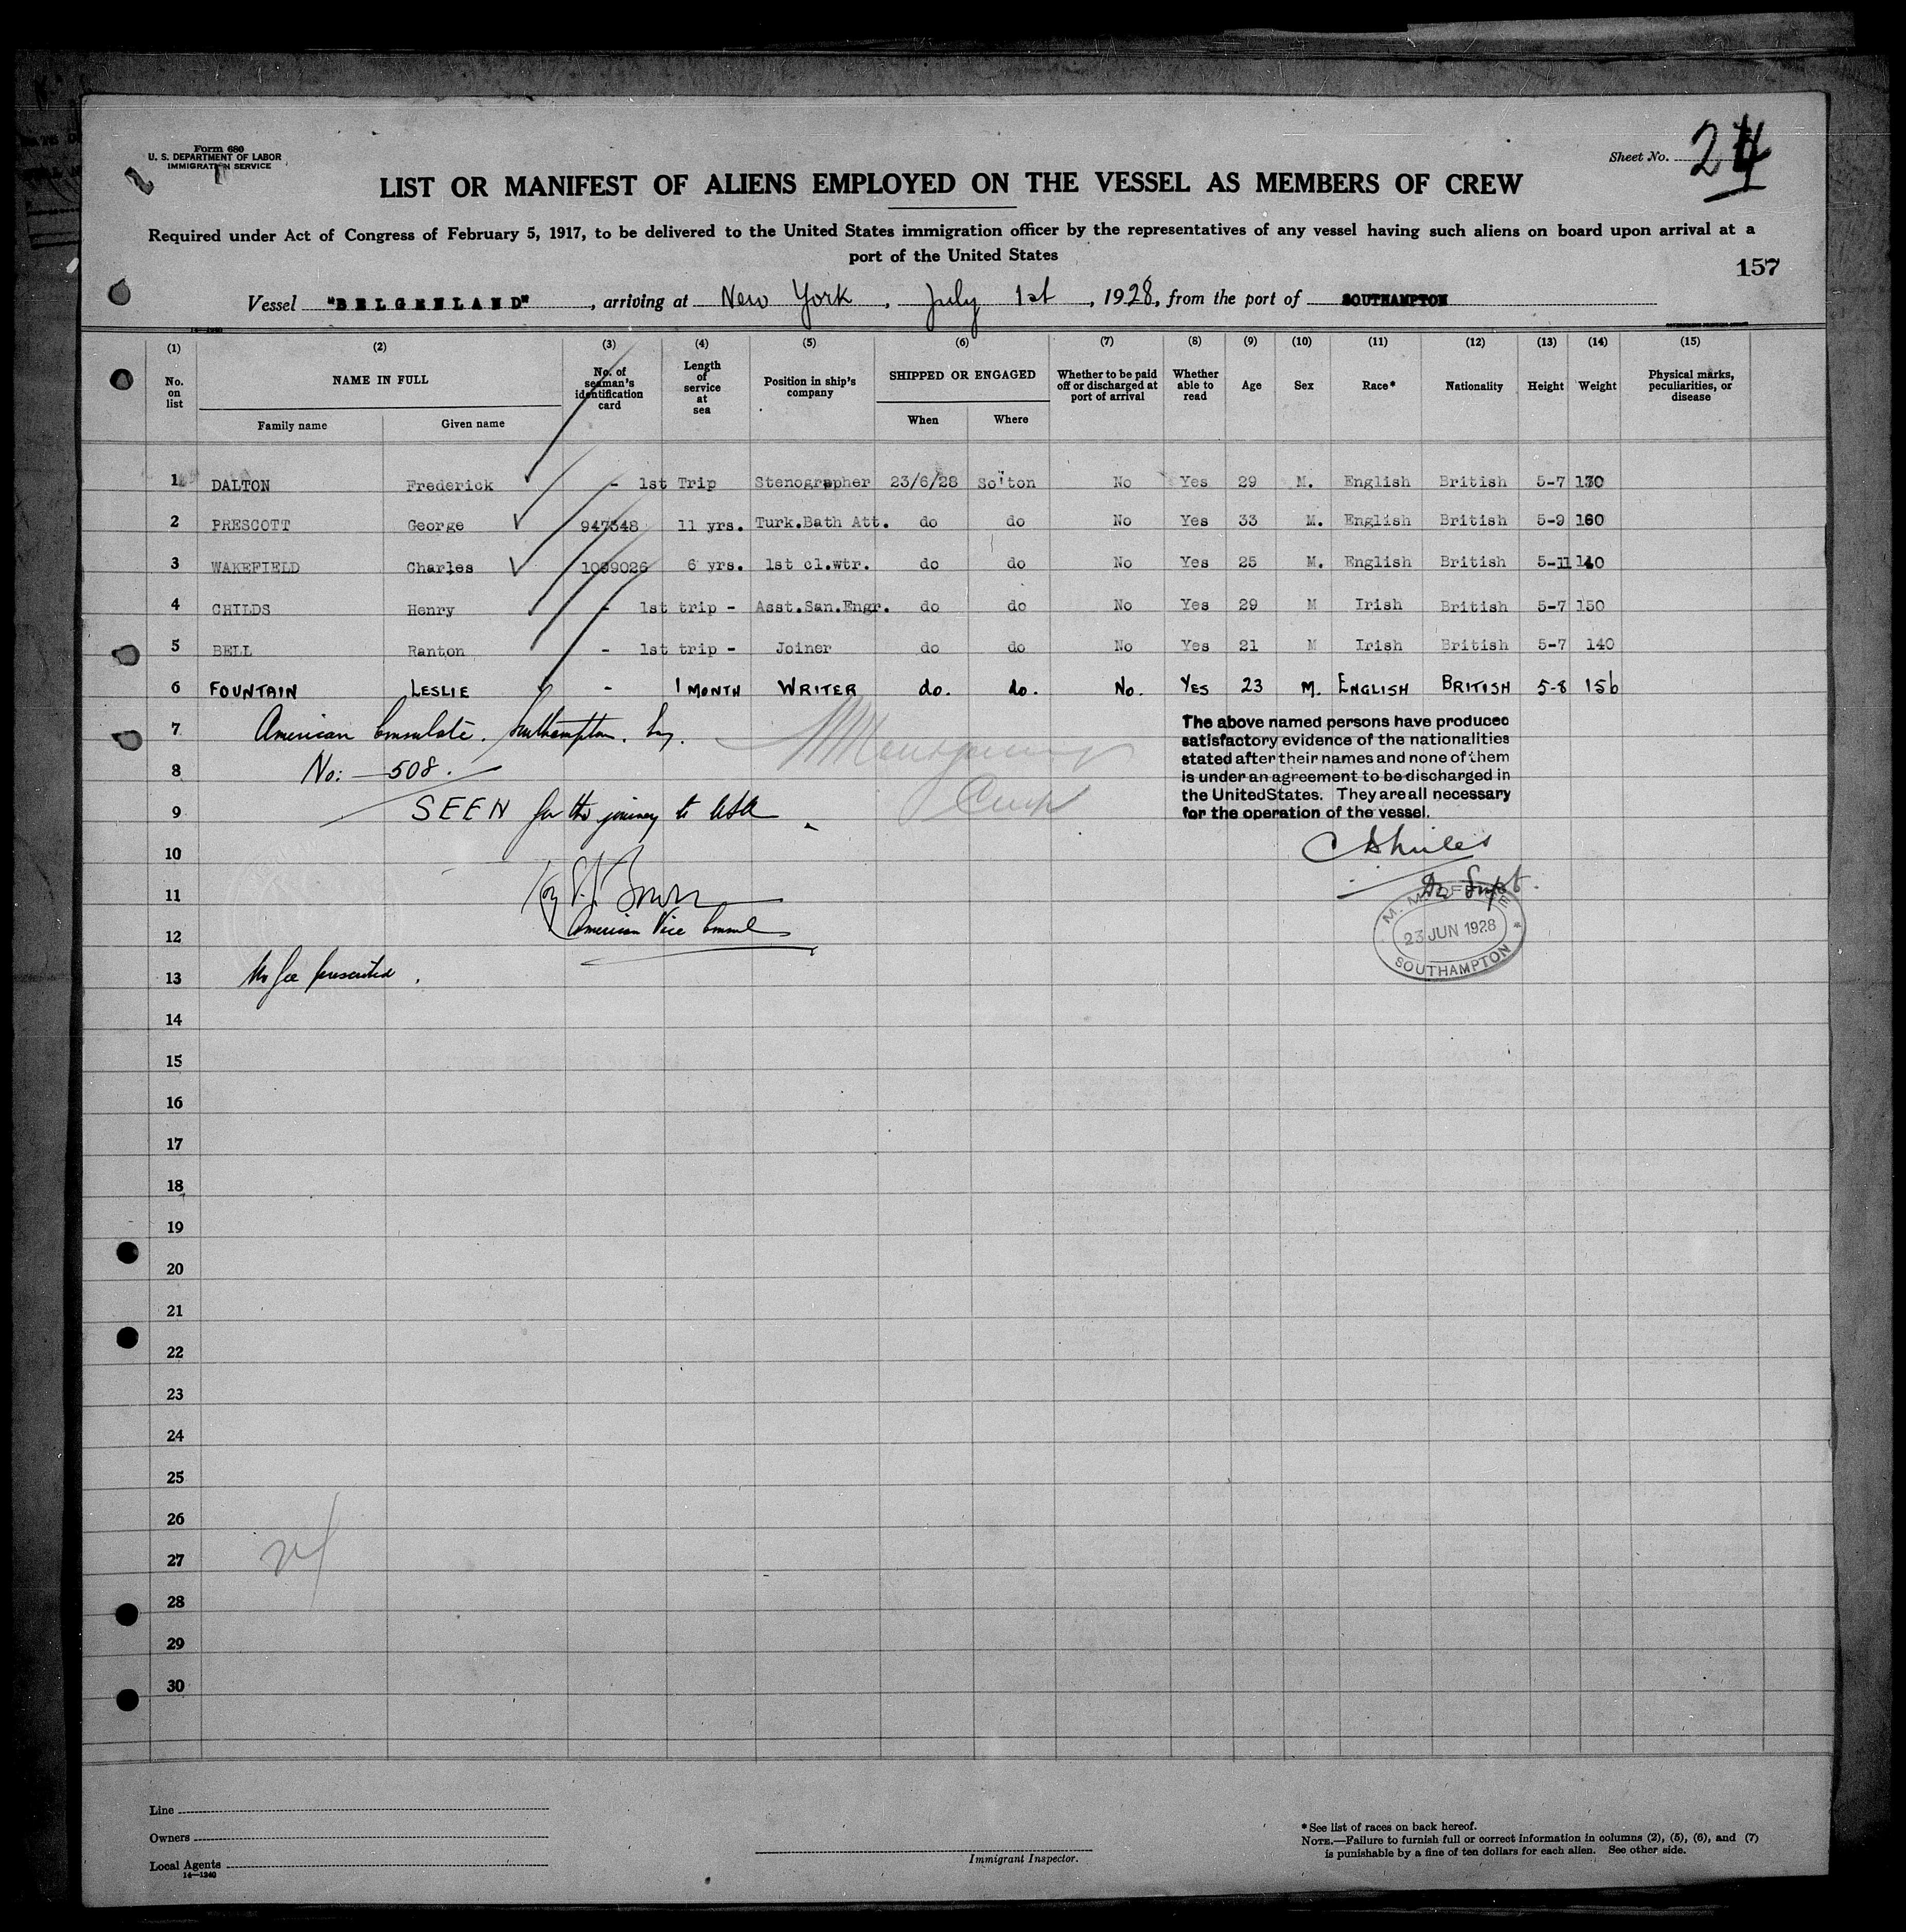 Form 680
U. S. DEPARTMENT OF LABOR
IMMIGRATION SERVICE
Sheet No. 24
LIST OR MANIFEST OF ALIENS EMPLOYED ON THE VESSEL AS MEMBERS OF CREW
Required under Act of Congress of February 5, 1917, to be delivered to the United States immigration officer by the representatives of any vessel having such aliens on board upon arrival at a
port of the United States
157
Vessel "BELGENLAND", arriving at New York, July 1st, 1928, from the port of SOUTHAMPTON
(1) (2) (3) (4) (5) (6) (7) (8) (9) (10) (11) (12) (13) (14) (15)
No. on list NAME IN FULL No. of seaman's identification card Length of service at sea Position in ship's company SHIPPED OR ENGAGED Whether to be paid off or discharged at port of arrival Whether able to read Age Sex Race* Nationality Height Weight Physical marks, peculiarities, or disease
Family name Given name When Where
1 DALTON Frederick - 1st Trip Stenographer 23/6/28 So'ton No Yes 29 M. English British 5-7 130
2 PRESCOTT George 947348 11 yrs. Turk.Bath Att. do do No Yes 33 M. English British 5-9 160
3 WAKEFIELD Charles 1099026 6 yrs. 1st cl.wtr. do do No Yes 25 M. English British 5-11 140
4 CHILDS Henry - 1st trip - Asst.San.Engr. do do No Yes 29 M Irish British 5-7 150
5 BELL Ranton - 1st trip - Joiner do do No Yes 21 M Irish British 5-7 140
6 FOUNTAIN LESLIE - 1 MONTH WRITER do. do. No. YES 23 M. ENGLISH BRITISH 5-8 156
7 American Consulate. Southampton. Eng.
The above named persons have produced
satisfactory evidence of the nationalities
stated after their names and none of them
is under an agreement to be discharged in
the United States. They are all necessary
for the operation of the vessel.
8 No: 508.
9 SEEN for the journey to USA
10
11
12 American Vice Consul
M. M. OFFICE
23 JUN 1928
SOUTHAMPTON
13 No fee prescribed.
14
15
16
17
18
19
20
21
22
23
24
25
26
27
28
29
30
Line
Owners
Local Agents
14—1240
Immigrant Inspector.
* See list of races on back hereof.
NOTE.—Failure to furnish full or correct information in columns (2), (5), (6), and (7)
is punishable by a fine of ten dollars for each alien. See other side.